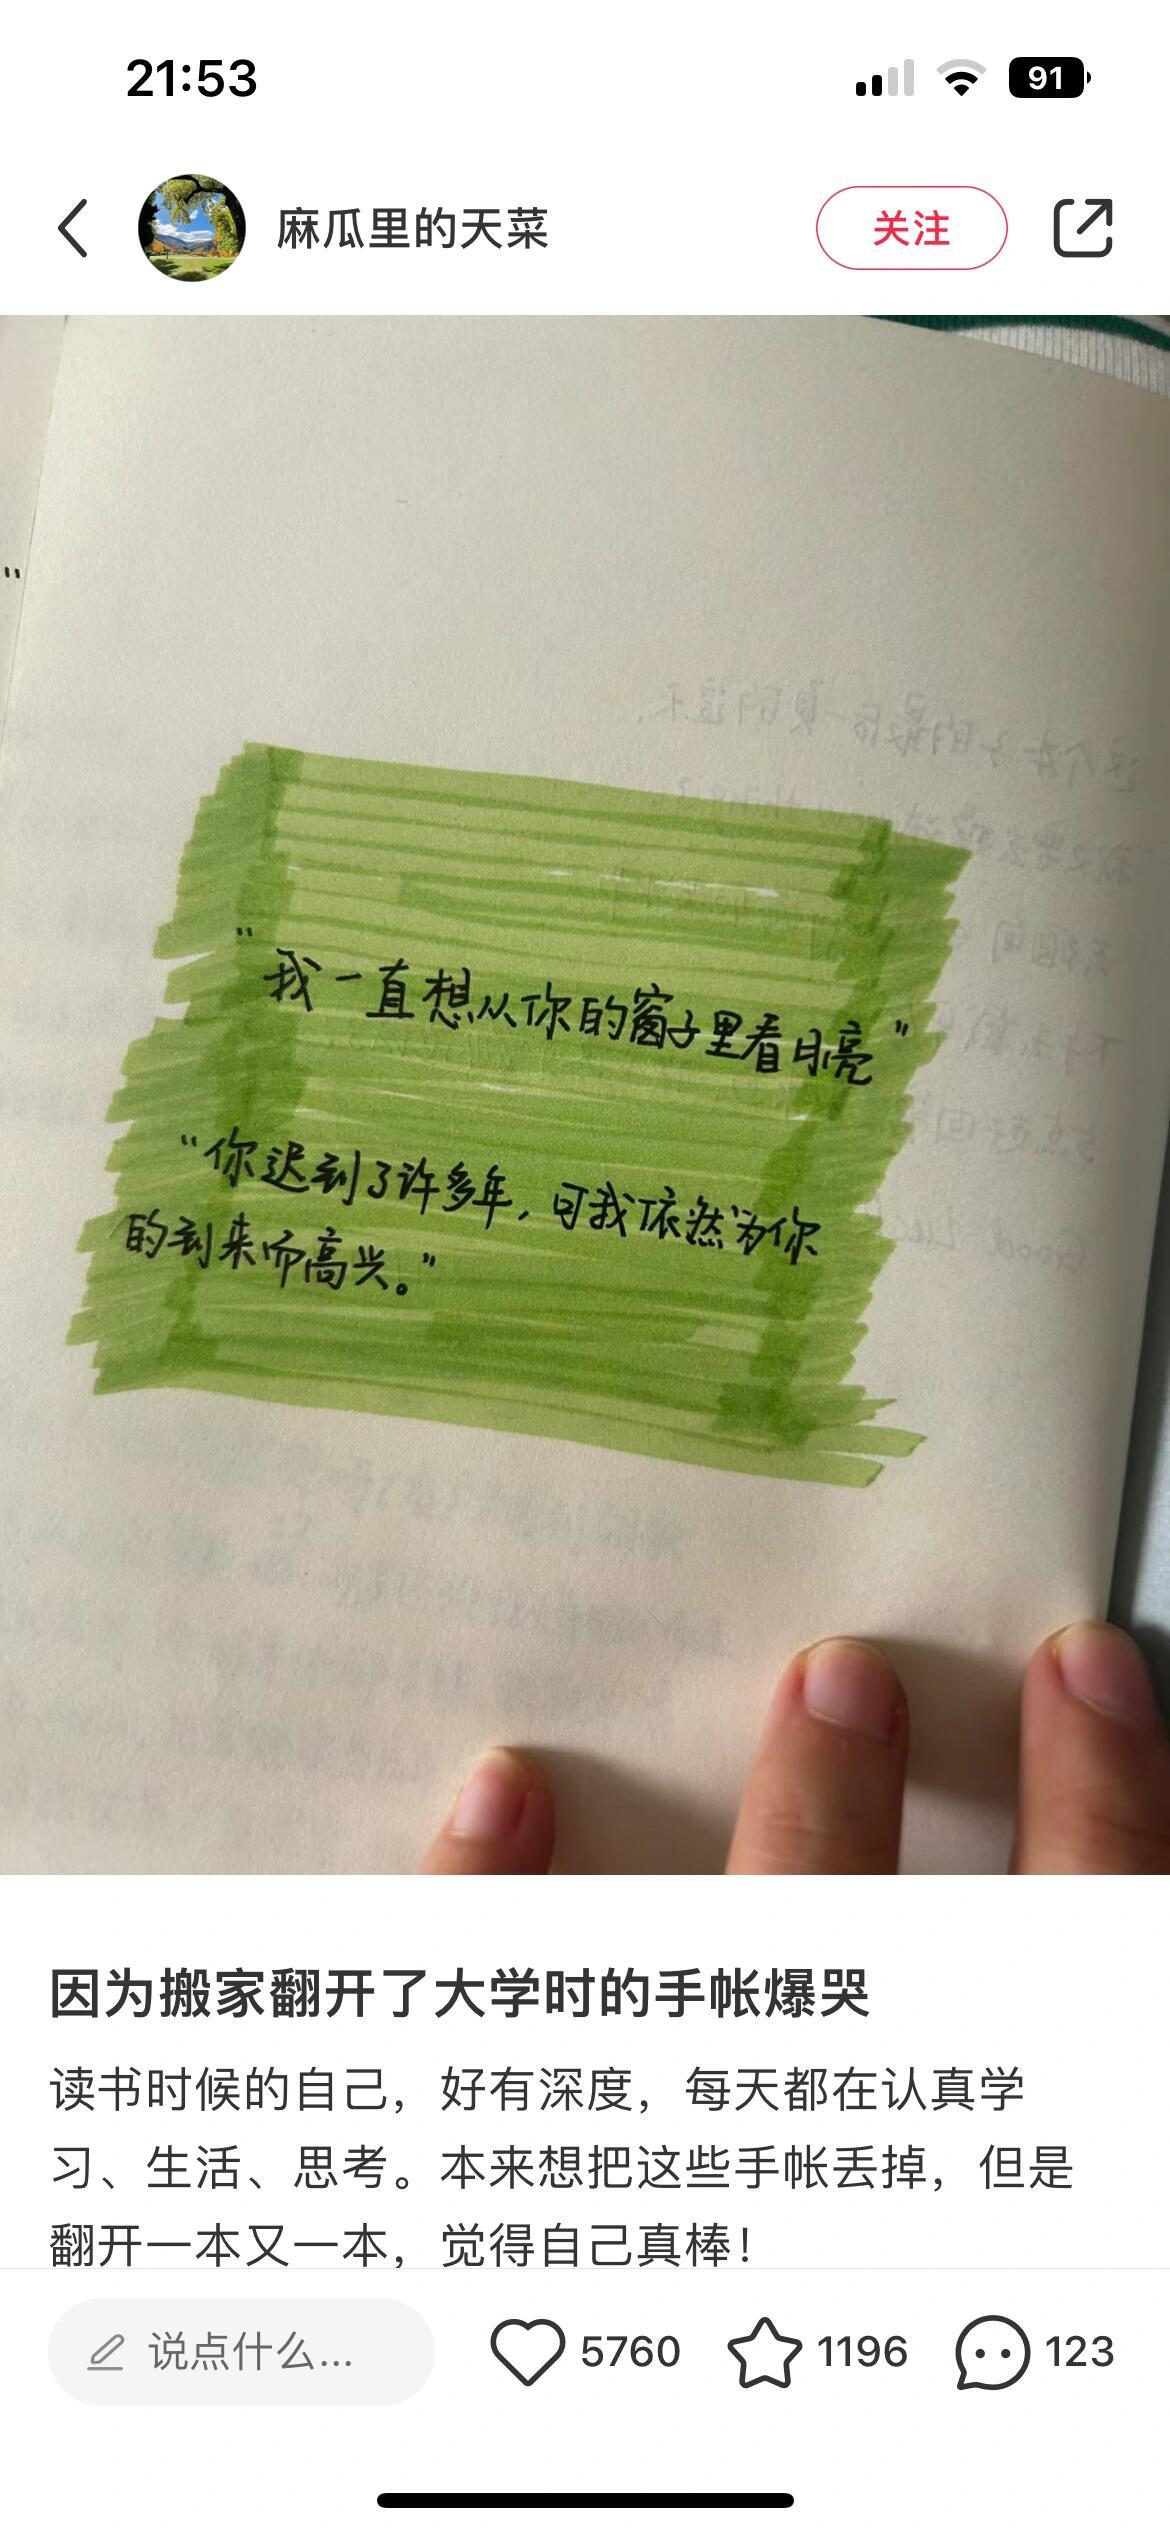 21:53
91
麻瓜里的天菜
关注
"
"我一直想从你的窗子里看月亮"
"你迟到了许多年,可我依然为你
的到来而高兴。"
因为搬家翻开了大学时的手帐爆哭
读书时候的自己，好有深度，每天都在认真学
习、生活、思考。本来想把这些手帐丢掉，但是
翻开一本又一本，觉得自己真棒！
说点什么...
5760
1196
123